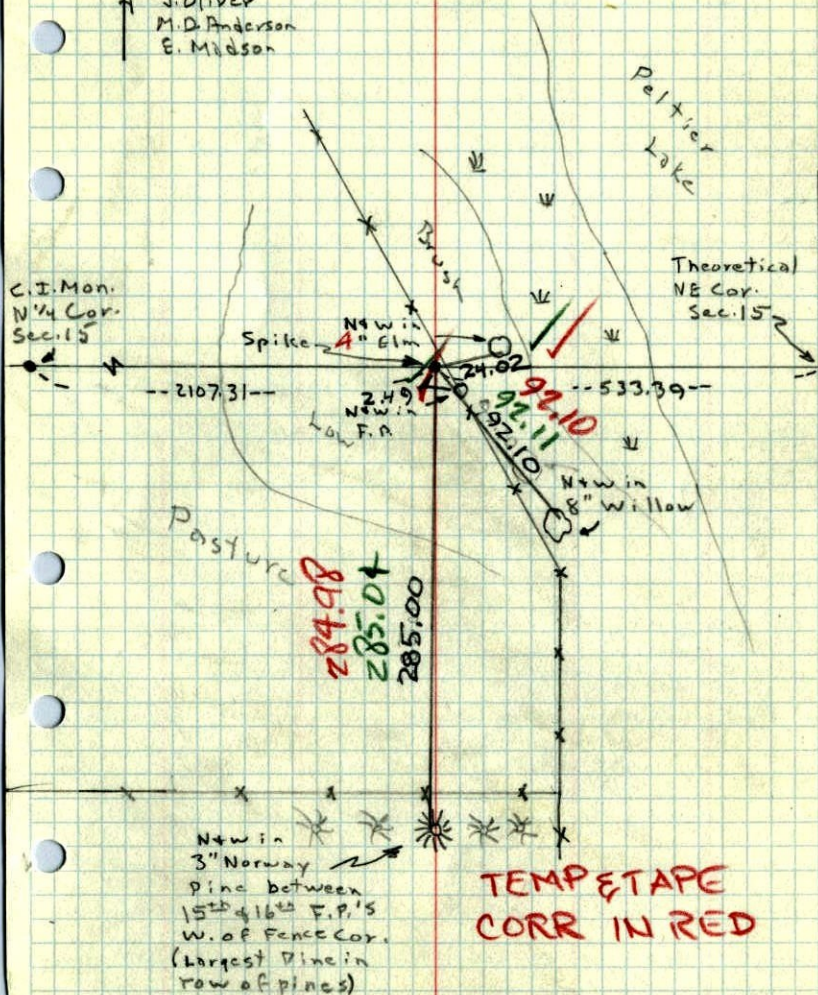 J. Oliver
M.D. Anderson
E. Madson
Peltier
Lake
Brush
C.I. Mon.
N 1/4 Cor.
Sec. 15
Theoretical
NE Cor.
Sec. 15
N+W in
4" Elm
Spike
24.02
--2107.31--
--533.39--
2.49
N+W in
F.P.
Low
92.10
92.11
92.10
N+W in
8" Willow
Pasture
284.98
285.04
285.00
N+W in
3" Norway
Pine between
15th & 16th F.P.'s
W. of Fence Cor.
(Largest Pine in
row of pines)
TEMP & TAPE
CORR IN RED